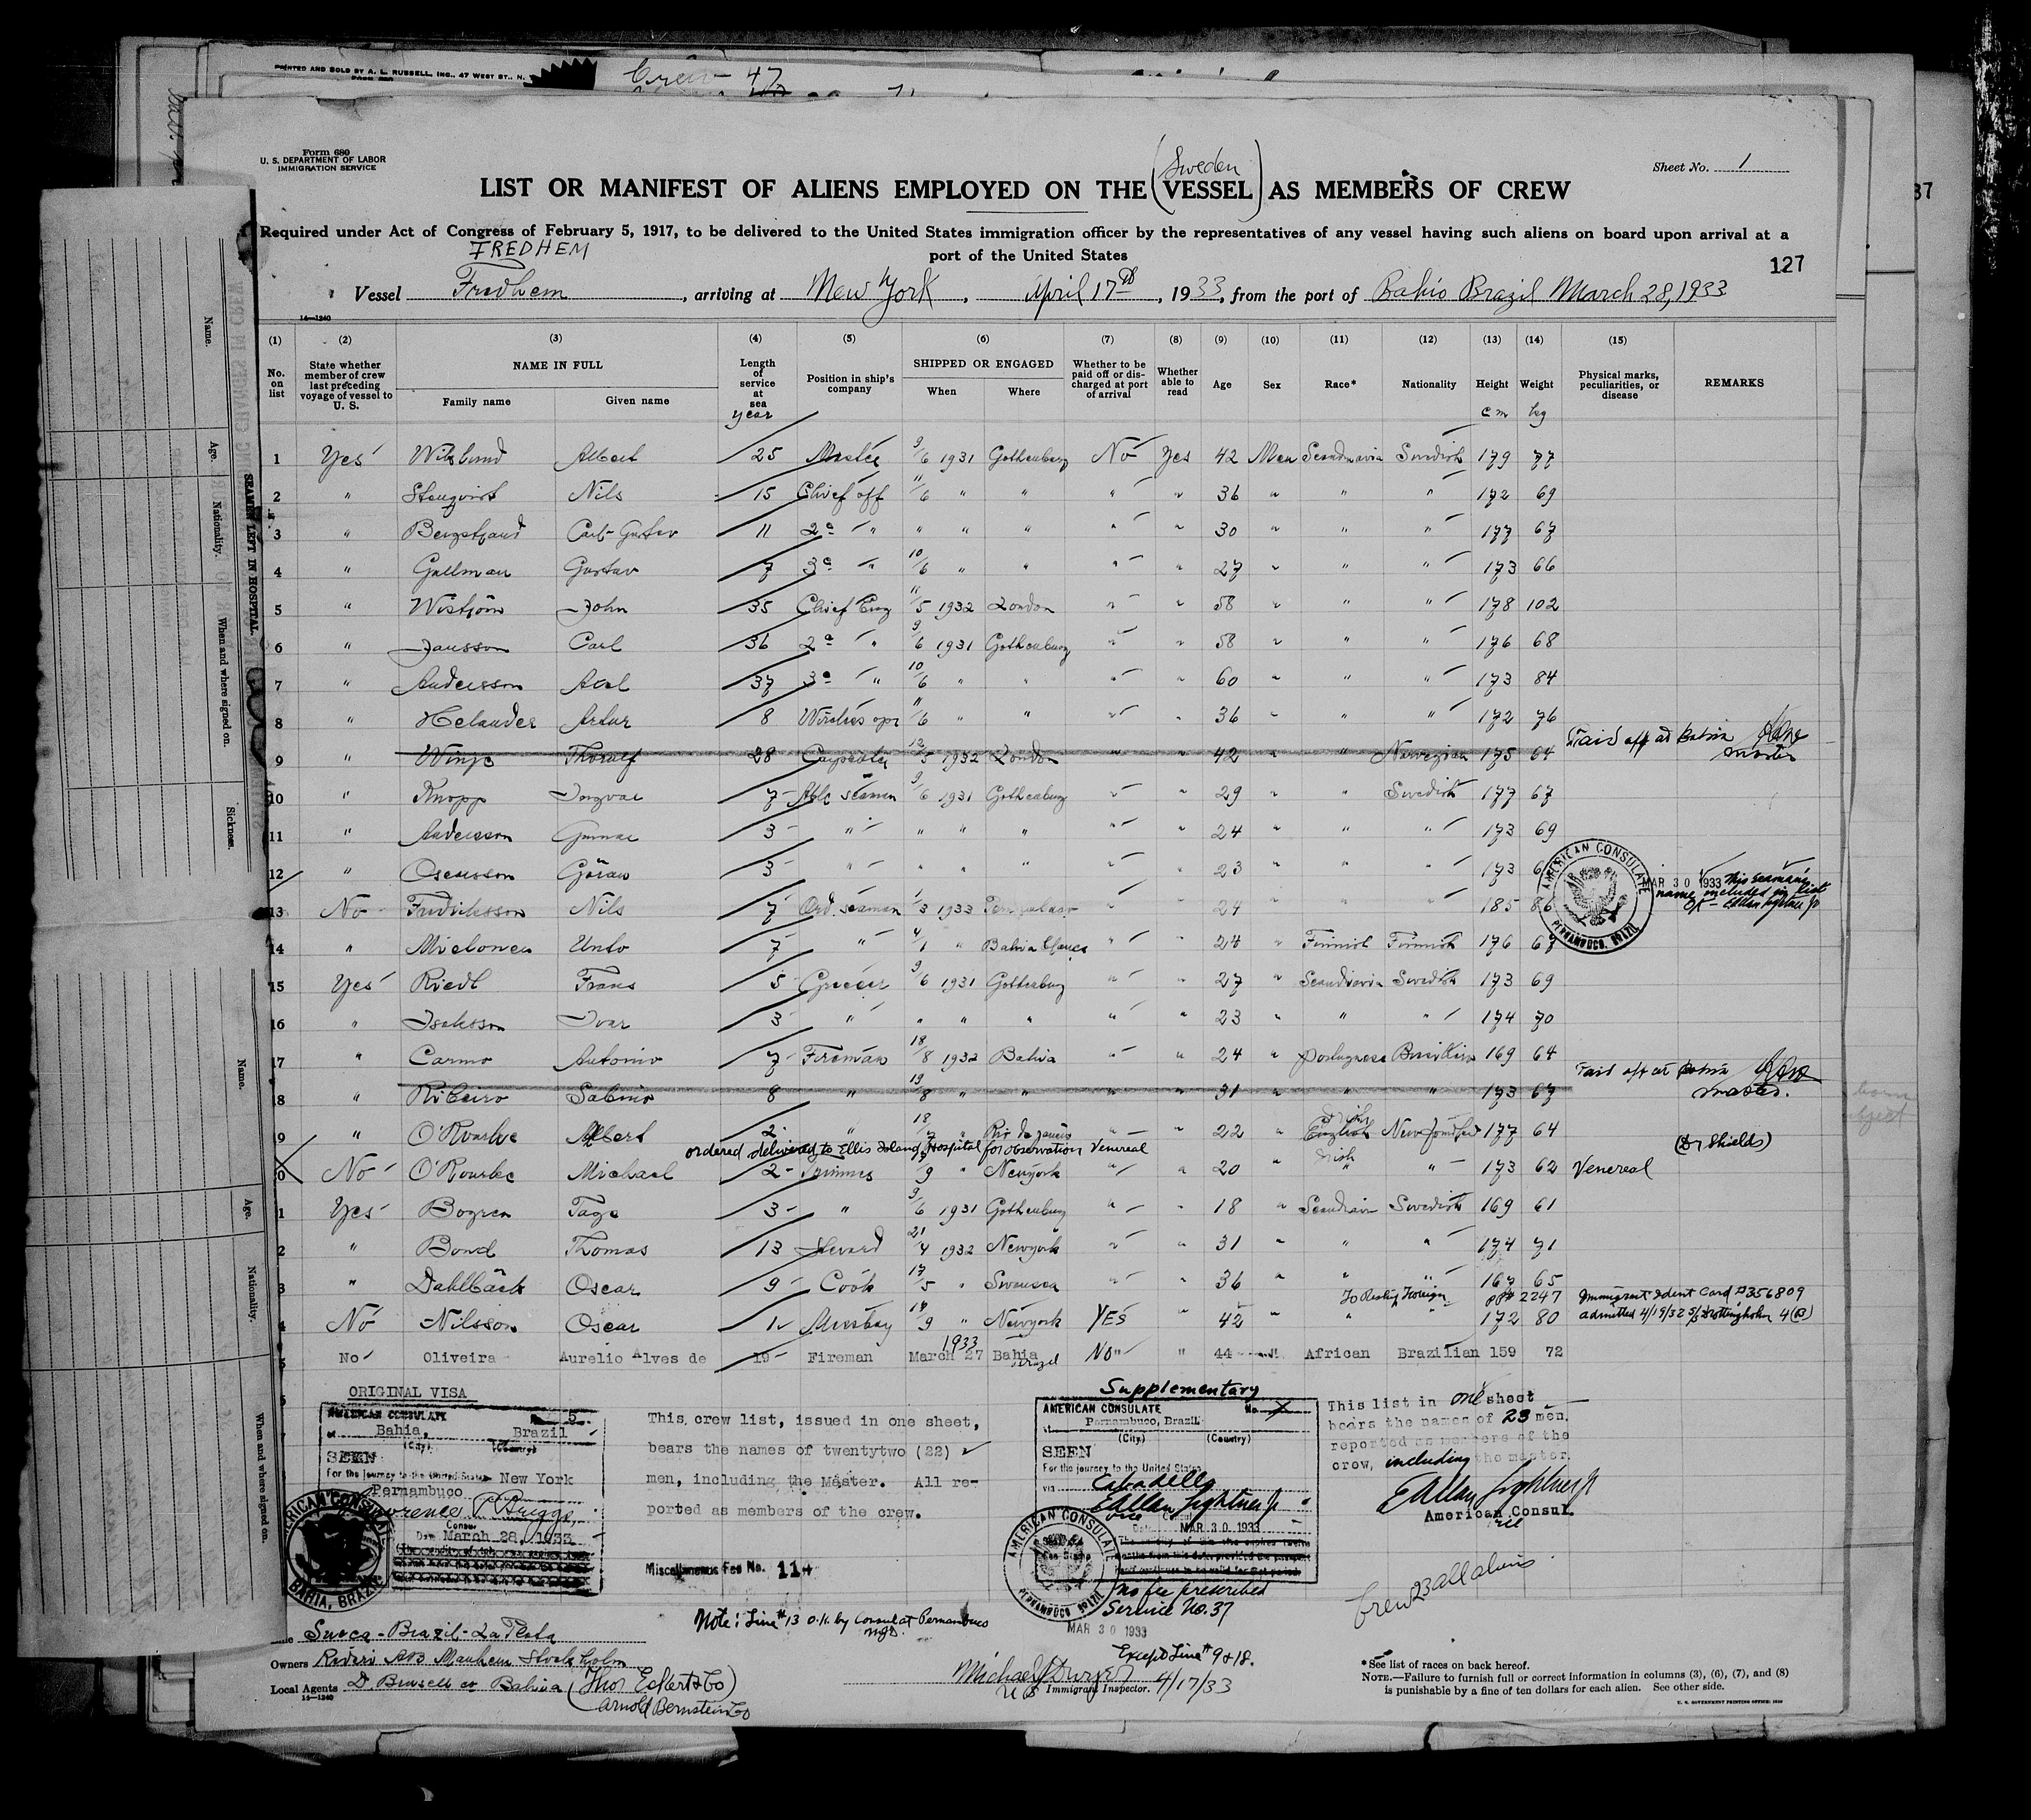 PRINTED AND SOLD BY A. L. RUSSELL, INC., 47 WEST ST., N.
Crew 47
Form 680
U. S. DEPARTMENT OF LABOR
IMMIGRATION SERVICE
Sheet No. 1
(Sweden)
LIST OR MANIFEST OF ALIENS EMPLOYED ON THE VESSEL AS MEMBERS OF CREW
Required under Act of Congress of February 5, 1917, to be delivered to the United States immigration officer by the representatives of any vessel having such aliens on board upon arrival at a
port of the United States
127
FREDHEM
Vessel Fredhem, arriving at New York, April 17th, 1933, from the port of Bahio Brazil March 28, 1933
14—1240
(1) (2) (3) (4) (5) (6) (7) (8) (9) (10) (11) (12) (13) (14) (15)
No. on list
State whether member of crew last preceding voyage of vessel to U. S.
NAME IN FULL
Family name
Given name
Length of service at sea
year
Position in ship's company
SHIPPED OR ENGAGED
When
Where
Whether to be paid off or discharged at port of arrival
Whether able to read
Age
Sex
Race*
Nationality
Height
cm
Weight
kg
Physical marks, peculiarities, or disease
REMARKS
1 Yes Albert 25 Master 9/6 1931 Gothenburg No Yes 42 Men Scandinavia Swedish 179 77
2 " Stenqvist Nils 15 Chief off 11/6 " " " " 36 " " " 172 69
3 " Carl-Gustav 11 2a " " " " " " 30 " " " 177 67
4 " Gullman Gustav 7 3a " 10/6 " " " " 27 " " " 173 66
5 " John 35 Chief Eng 11/5 1932 London " " 58 " " " 178 102
6 " Jansson Carl 36 2a " 9/6 1931 Gothenburg " " 58 " " " 176 68
7 " Andersson Axel 37 3a " 10/6 " " " " 60 " " " 173 84
8 " Helander Artur 8 Wireless opr 11/6 " " " " 36 " " " 172 76
9 " Winje Thoralf 28 Carpenter 12/5 1932 London " " 42 " " Norwegian 175 64 Paid off at Bahia master
10 " Knopp Ingvar 7 Able seaman 9/6 1931 Gothenburg " " 29 " " Swedish 177 67
11 " Andersson Gunnar 3 " " " " " " 24 " " " 173 69
12 " Oscarsson Göran 3 " " " " " " 23 " " " 173
MAR 30 1933 This seaman's name included in list
13 No Fredriksson Nils 7 Ord. seaman 1/3 1933 " " 24 " " " 185 86
14 " Unto 7 " 4/1 " Bahia Blanca " " 24 " Finnish Finnish 176 67
15 Yes Riedl Frans 5 Greaser 9/6 1931 Gothenburg " " 27 " Scandinavia Swedish 173 69
16 " Isaksson Ivar 3 " " " " " " 23 " " " 174 70
17 " Carmo Antonio 7 Fireman 18/8 1932 Bahia " " 24 " portugnese Brasilian 169 64
8 " Ribeiro Sabino 8 " 19/8 " " " " 31 " " " 173 67 Paid off at Bahia master.
9 " O'Rourke Albert 2 " 18/7 " Rio de Janeiro " " 22 " English Irish 177 64
ordered delivered to Ellis Island Hospital for observation Venereal (Dr Shields)
0 No O'Rourke Michael 2 9 " Newyork " " 20 " Irish " 173 62 Venereal
1 Yes Bogren Tage 3 " 9/6 1931 Gothenburg " " 18 " Swedish 169 61
2 " Bond Thomas 13 Steward 21/4 1932 Newyork " " 31 " " " 174 71
3 " Dahlbäck Oscar 9 Cook 17/5 " Swansea " " 36 " " " 167 65
To Reship Foreign 2247 Immigrant Ident Card #356809
4 No Nilsson Oscar 1 Messboy 14/9 " Newyork YES " 42 " " " 172 80 admitted 4/19/32 S/S Drottingholm 4(B)
5 No Oliveira Aurelio Alves de 19 Fireman March 27 1933 Bahia Brazil No " 44 " African Brazilian 159 72
ORIGINAL VISA
AMERICAN CONSULATE No. 5
at Bahia, Brazil
(City) (Country)
SEEN
For the journey to the United States New York
Pernambuco
Consul
Date March 28, 1933
AMERICAN CONSULATE BAHIA, BRAZIL
This crew list, issued in one sheet,
bears the names of twentytwo (22)
men, including the Master. All re-
ported as members of the crew.
Miscellaneous Fee No. 114
Supplementary
AMERICAN CONSULATE No.
at Pernambuco, Brazil
(City) (Country)
SEEN
For the journey to the United States
via Cabadello
E Allan Lightner Jr
Vice Consul
Date MAR 30 1933
no fee prescribed
Service No. 37
AMERICAN CONSULATE PERNAMBUCO, BRAZIL
MAR 30 1933
This list in one sheet
bears the names of 23 men,
reported as members of the
crew, including the master.
E Allan Lightner Jr
American Consul
Vice
Crew 23 all aliens
Note: Line #13 O.K. by Consul at Pernambuco
Except Line # 9 & 18.
Line Sueca-Brazil-La Plata
Owners Rederi A/B Manhem Stockholm
Local Agents Bahia (Thor Eckert & Co)
Arnold Bernstein Co
14—1240
Michael J Dwyer
U S Immigrant Inspector. 4/17/33
*See list of races on back hereof.
NOTE.—Failure to furnish full or correct information in columns (3), (6), (7), and (8)
is punishable by a fine of ten dollars for each alien. See other side.
U. S. GOVERNMENT PRINTING OFFICE: 1930
SEAMEN LEFT IN HOSPITAL
Name.
Age.
Nationality.
When and where signed on.
Sickness.
Name.
Age.
Nationality.
When and where signed on.